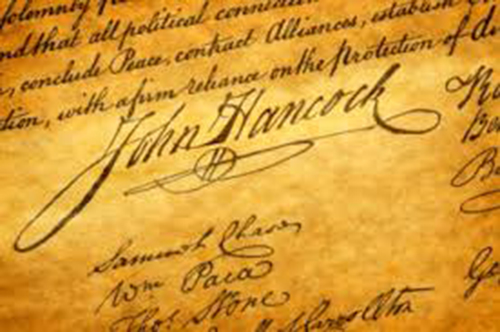 olemnly p
nd that all political connection
, conclude Peace, contract Alliances, establish
tion, with a firm reliance on the Protection of di
John Hancock
Samuel Chase
Wm Paca
Thos Stone
Carrollton